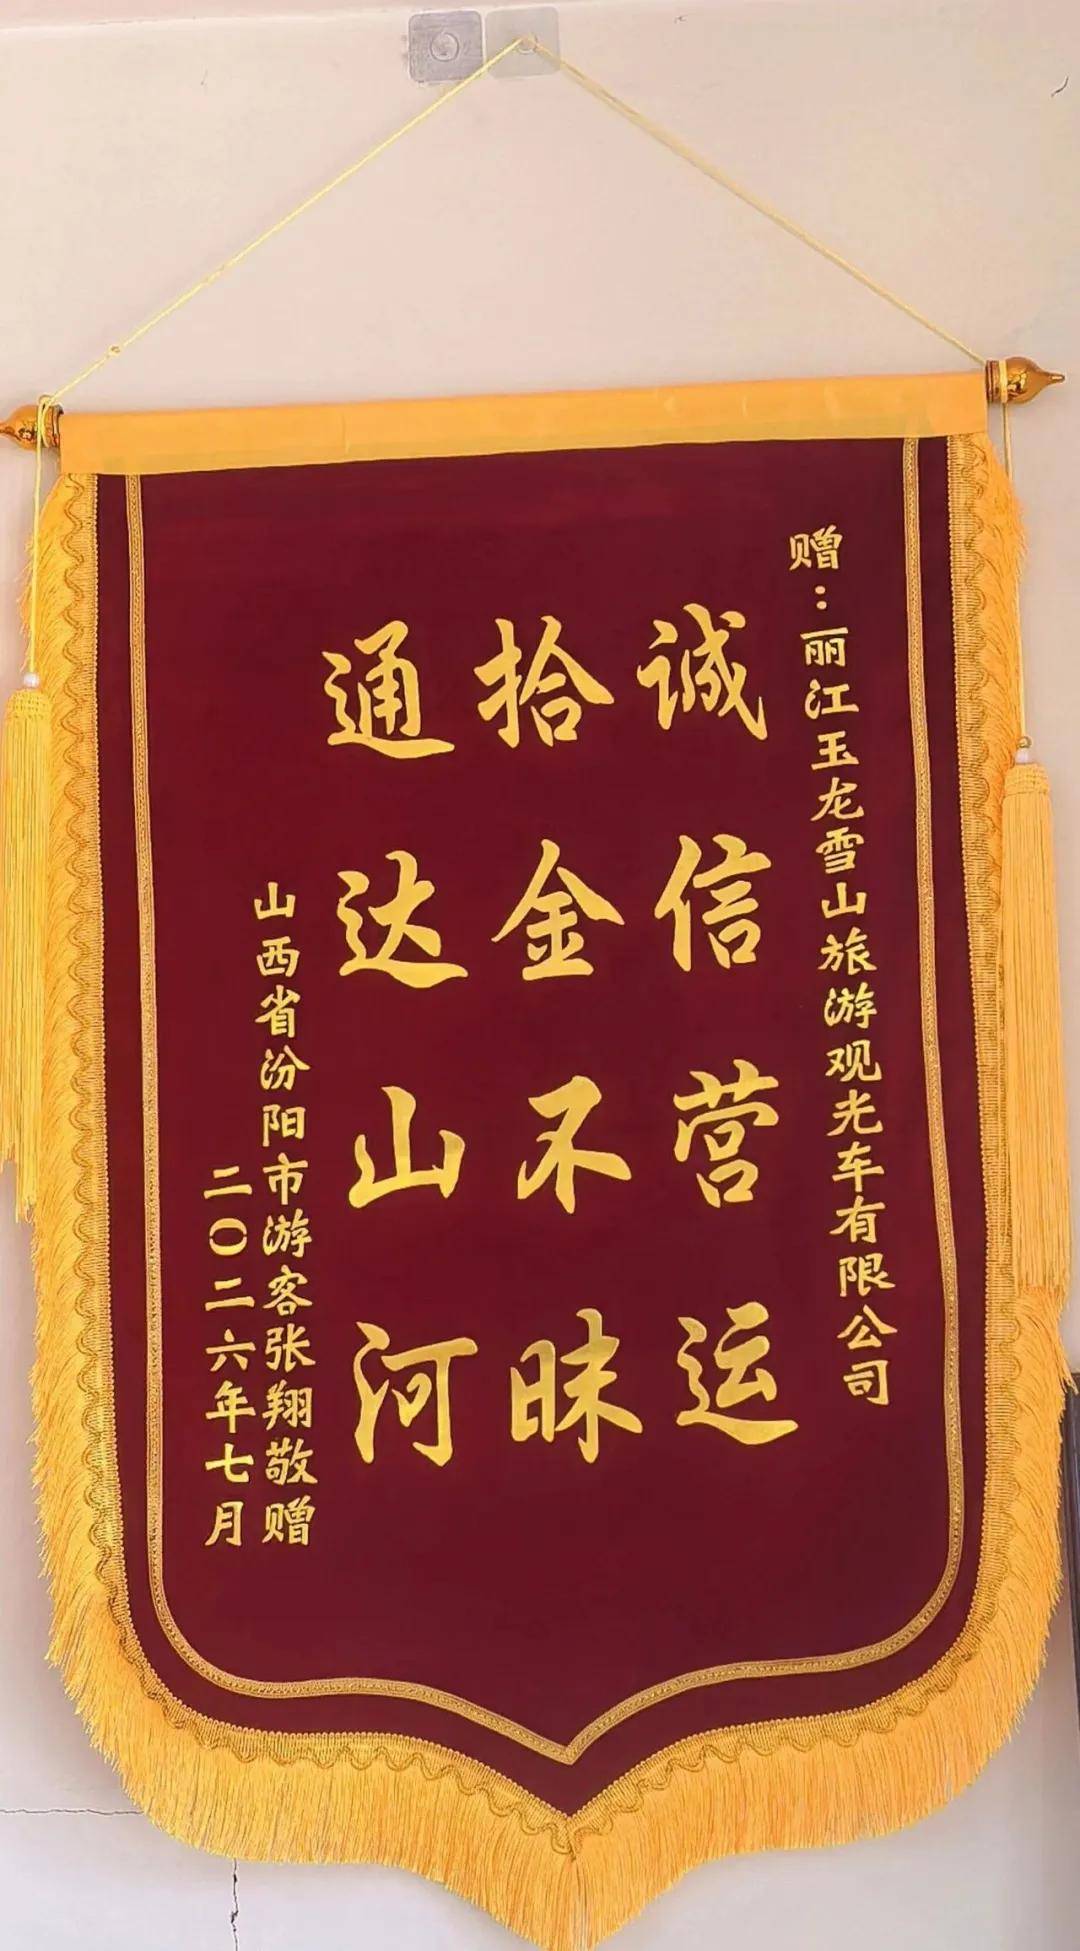 赠：丽江玉龙雪山旅游观光车有限公司
诚信营运
拾金不昧
通达山河
山西省汾阳市游客张翔敬赠
二〇二六年七月